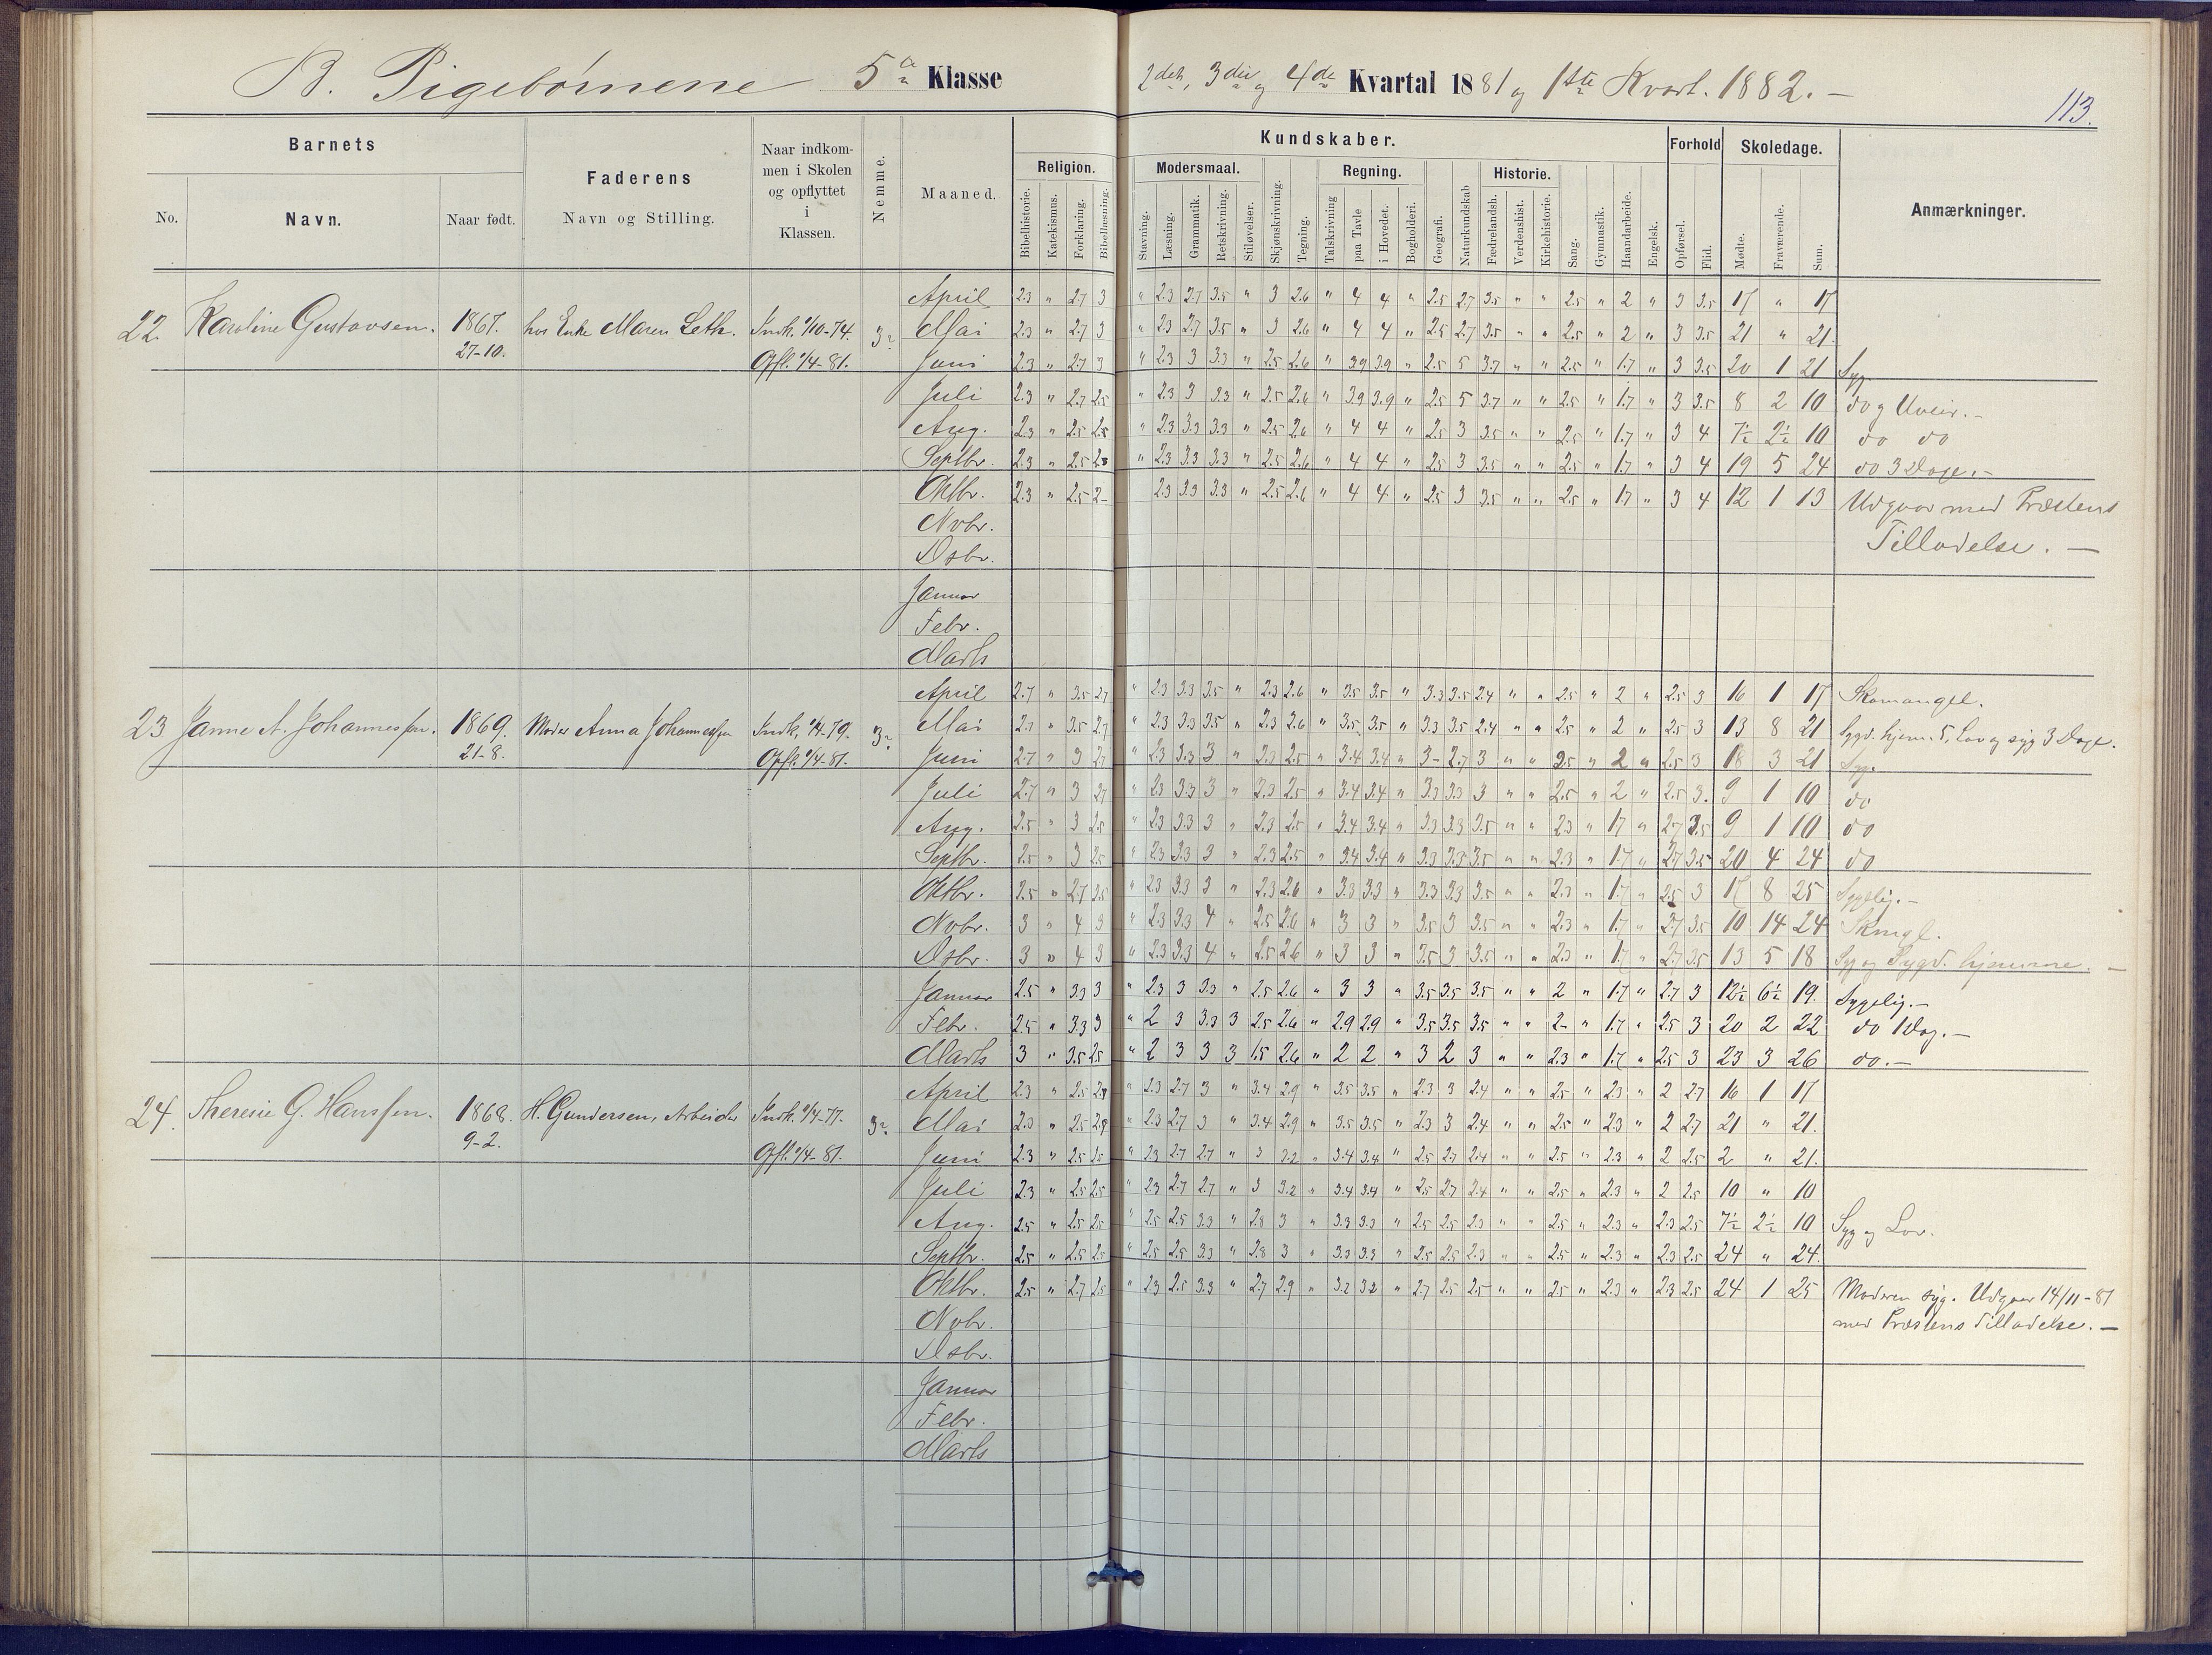 B. Pigebørnene 5a Klasse
2det, 3die og 4de Kvartal 1881 og 1ste Kvart. 1882. –
113.
Barnets
No.
Navn.
Naar født.
Faderens
Navn og Stilling.
Naar indkom-
men i Skolen
og opflyttet
i
Klassen.
Nemme.
Maaned.
Kundskaber.
Religion.
Bibelhistorie.
Katekismus.
Forklaring.
Bibellæsning.
Modersmaal.
Stavning.
Læsning.
Grammatik.
Retskrivning.
Stiløvelser.
Skjønskrivning.
Tegning.
Regning.
Talskrivning
paa Tavle
i Hovedet.
Bogholderi.
Geografi.
Naturkundskab
Historie.
Fædrelandsh.
Verdenshist.
Kirkehistorie.
Sang.
Gymnastik.
Haandarbeide.
Engelsk.
Forhold
Opførsel.
Flid.
Skoledage.
Mødte.
Fraværende.
Sum.
Anmærkninger.
22. Karoline Gustavsen. 1867. 27-10. hos Enke Maren Leth. Indk. 1/10-74. Opfl. 1/4-81. 3
April 2.3 " 2.7 3 " 2.3 2.7 3.5 " 3 2.6 " 4 4 " 2.5 2.7 3.5 " " 2.5 " 2 " 3 3.5 17 " 17
Mai 2.3 " 2.7 3 " 2.3 2.7 3.5 " 3 2.6 " 4 4 " 2.5 2.7 3.5 " " 2.5 " 2 " 3 3.5 21 " 21.
Juni 2.3 " 2.7 3 " 2.3 3 3.3 " 2.5 2.6 " 3.9 3.9 " 2.5 5 3.7 " " 2.5 " 1.7 " 3 3.5 20 1 21 Syg
Juli 2.3 " 2.7 2.5 " 2.3 3 3.3 " 2.5 2.6 " 3.9 3.9 " 2.5 5 3.7 " " 2.5 " 1.7 " 3 3.5 8 2 10 do og Uveir. –
Aug. 2.3 " 2.5 2.5 " 2.3 3.3 3.3 " 2.5 2.6 " 4 4 " 2.5 3 3.5 " " 2.5 " 1.7 " 3 4 7½ 2½ 10 do do
Septbr. 2.3 " 2.5 2.3 " 2.3 3.3 3.3 " 2.5 2.6 " 4 4 " 2.5 3 3.5 " " 2.5 " 1.7 " 3 4 19 5 24 do 3 Dage. –
Oktbr. 2.3 " 2.5 2- 2.3 3.3 3.3 " 2.5 2.6 " 4 4 " 2.5 3 3.5 " " 2.5 " 1.7 " 3 4 12 1 13 Udgaar med Præstens
Novbr.
Tilladelse. –
Dsbr.
Januar
Febr.
Marts
23 Janne A. Johannessen. 1869. 21-8. Moder Anna Johannessen Indk. 1/4-79. Opfl. 1/4-81. 3
April 2.7 " 3.5 2.7 " 2.3 3.3 3.5 " 2.3 2.6 " 3.5 3.5 " 3.3 3.5 2.4 " " 2.5 " 2 " 2.5 3 16 1 17 Skomangel.
Mai 2.7 " 3.5 2.7 " 2.3 3.3 3.5 " 2.3 2.6 " 3.5 3.5 " 3.3 3.5 2.4 " " 2.5 " 2 " 2.5 3 13 8 21 Sygd. hjem. 5, Lov og syg 3 Dage.
Juni 2.7 " 3 2.7 " 2.3 3.3 3 " 2.3 2.5 " 3.4 3.4 " 3- 2.7 3 " " 2.5 " 2 " 2.5 3 18 3 21 Syg.
Juli 2.7 " 3 2.7 " 2.3 3.3 3 " 2.3 2.5 " 3.4 3.4 " 3.3 3.3 3 " " 2.5 " 2 " 2.5 3. 9 1 10 do
Aug. 2.5 " 3 2.5 " 2.3 3.3 3 " 2.3 2.5 " 3.4 3.4 " 3.3 3.3 3.5 " " 2.3 " 1.7 " 2.7 3.5 9 1 10 do
Septbr. 2.5 " 3 2.5 " 2.3 3.3 3 " 2.3 2.5 " 3.4 3.4 " 3.3 3.3 3.5 " " 2.3 " 1.7 " 2.7 3.5 20 4 24 do
Oktbr. 2.5 " 2.7 2.5 " 2.3 3.3 3 " 2.3 2.6 " 3.3 3.3 " 3.3 3.3 3.5 " " 2.3 " 1.7 " 2.5 3 17 8 25 Sygelig. –
Novbr. 3 " 4 3 " 2.3 3.3 4 " 2.5 2.6 " 3 3 " 3.5 3 3.5 " " 2.3 " 1.7 " 2.7 3.5 10 14 24 Skmgl.
Dsbr. 3 " 4 3 " 2.3 3.3 4 " 2.5 2.6 " 3 3 " 3.5 3 3.5 " " 2.3 " 1.7 " 2.7 3.5 13 5 18 Syg og Sygd. hjemme. –
Januar 2.5 " 3.3 3 " 2.3 3 3.3 " 2.5 2.6 " 3 3 " 3.5 3.5 3.5 " " 2 " 1.7 " 2.7 3 12½ 6½ 19. Sygelig. –
Febr. 2.5 " 3.3 3 " 2 3 3.3 3 2.5 2.6 " 2.9 2.9 " 3.5 3.5 3.5 " " 2- " 1.7 " 2.5 3 20 2 22 do 1 Dag. –
Marts 3 " 3.5 2.5 " 2 3 3 3 1.5 2.6 " 2 2 " 3 2 3 " " 2.3 " 1.7 " 2.5 3 23 3 26 do. –
24. Theresie G. Hanssen. 1868. 9-2. H. Gundersen, Arbeider Indk. 1/4-77. Opfl. 1/4-81. 3
April 2.3 " 2.5 2.9 " 2.3 2.7 3 " 3.4 2.9 " 3.5 3.5 " 2.3 3 2.4 " " 2.5 " 2.3 " 2 2.7 16 1 17
Mai 2.3 " 2.5 2.9 " 2.3 2.7 3 " 3.4 2.9 " 3.5 3.5 " 2.3 3 2.4 " " 2.5 " 2.3 " 2 2.7 21 " 21.
Juni 2.3 " 2.5 2.5 " 2.3 2.7 2.7 " 3 3.2 " 3.4 3.4 " 2.5 2.7 2.4 " " 2.5 " 2.3 " 2 2.5 2 " 21.
Juli 2.3 " 2.5 2.5 " 2.3 2.7 2.7 " 3 3.2 " 3.4 3.4 " 2.5 2.7 2.4 " " 2.5 " 2.3 " 2 2.5 10 " 10
Aug. 2.5 " 2.5 2.5 " 2.5 2.5 3.3 " 2.8 3 " 3.3 3.3 " 2.5 2.5 2.3 " " 2.5 " 2.3 " 2.3 2.5 7½ 2½ 10 Syg og Lov.
Septbr. 2.5 " 2.5 2.5 " 2.5 2.5 3.3 " 2.8 3 " 3.3 3.3 " 2.5 2.5 2.3 " " 2.5 " 2.3 " 2.3 2.5 24 " 24.
Oktbr. 2.5 " 2.7 2.5 " 2.3 2.5 3.3 " 2.7 2.9 " 3.2 3.2 " 2.7 2.5 2.5 " " 2.5 " 2.3 " 2.3 2.5 24 1 25 Moderen syg. Udgaar 14/11-81
Novbr.
med Præstens Tilladelse. –
Dsbr.
Januar
Febr.
Marts